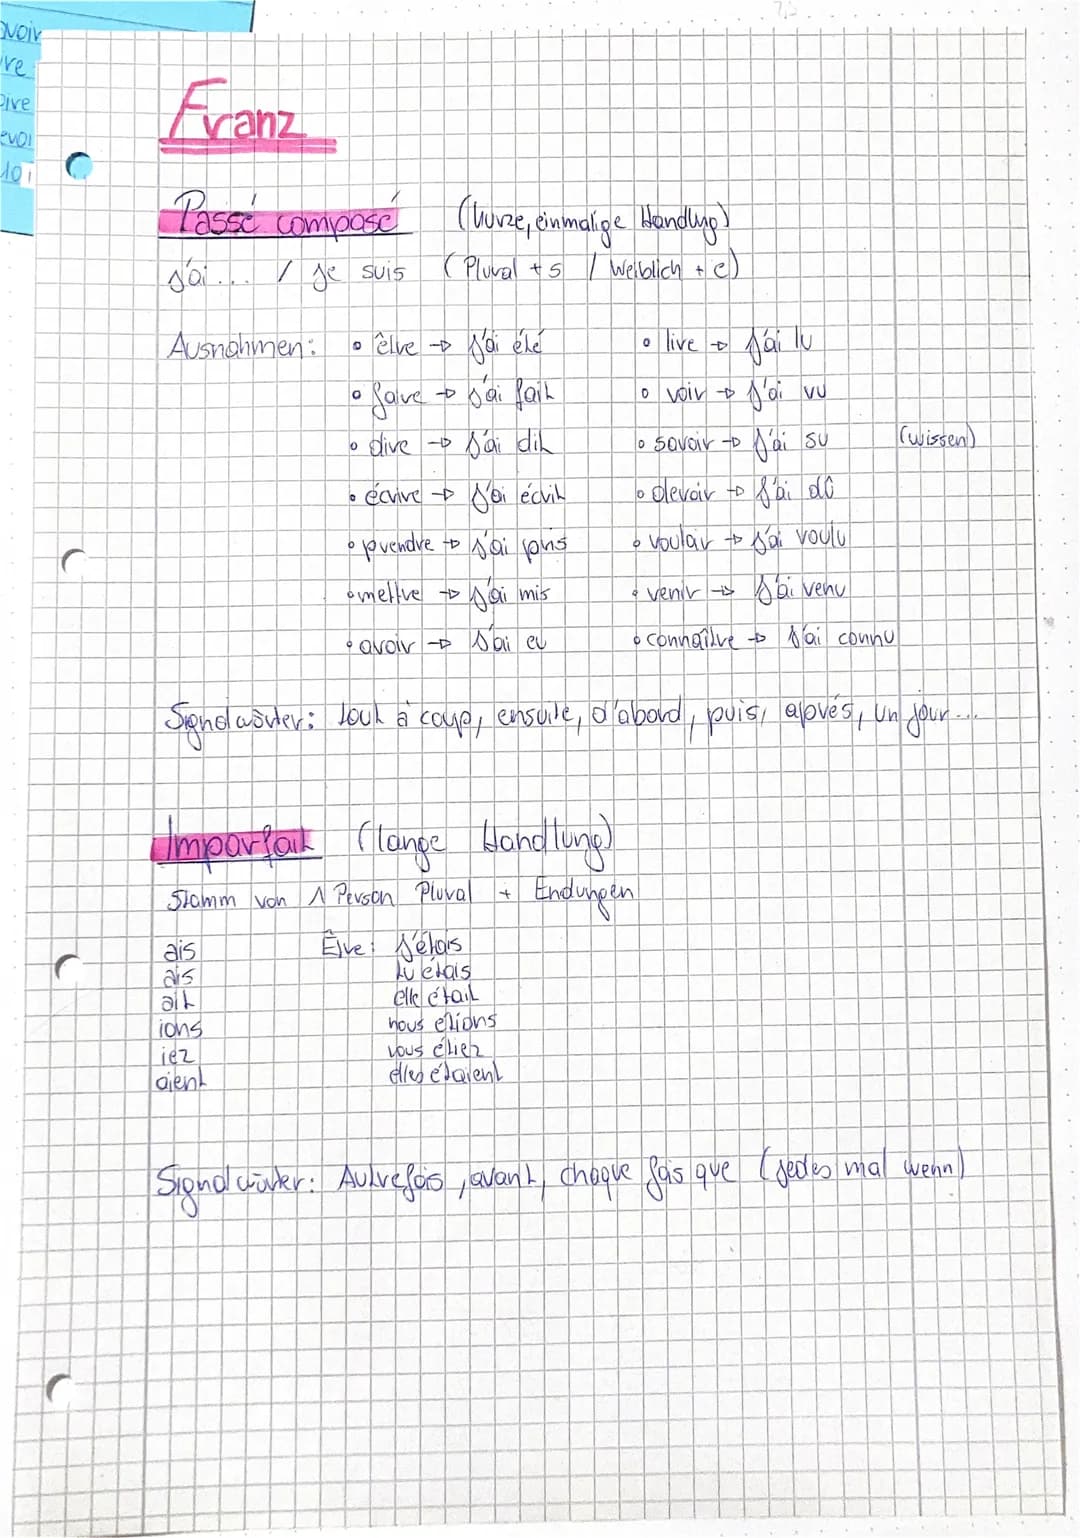 Franz
Passé composé (kurze, einmalige Handlung)
j'ai... / je suis (Plural + s / Weiblich + e)
Ausnahmen: • être → j'ai été • lire → j'ai lu
• faire → j'ai fait • voir → j'ai vu
• dire → j'ai dit • savoir → j'ai su (wissen)
• écrire → j'ai écrit • devoir → j'ai dû
• prendre → j'ai pris • voulair → j'ai voulu
• mettre → j'ai mis • venir → j'ai venu
• avoir → j'ai eu • connaître → j'ai connu
Signalwörter: tout à coup, ensuite, d'abord, puis, aprés, un jour...
Imparfait (lange Handlung)
Stamm von 1 Person Plural + Endungen
ais Être: j'étais
ais tu étais
ait elle était
ions nous étions
iez vous étiez
aient elles étaient
Signalwörter: Autrefois, avant, chaque fois que (jedes mal wenn)